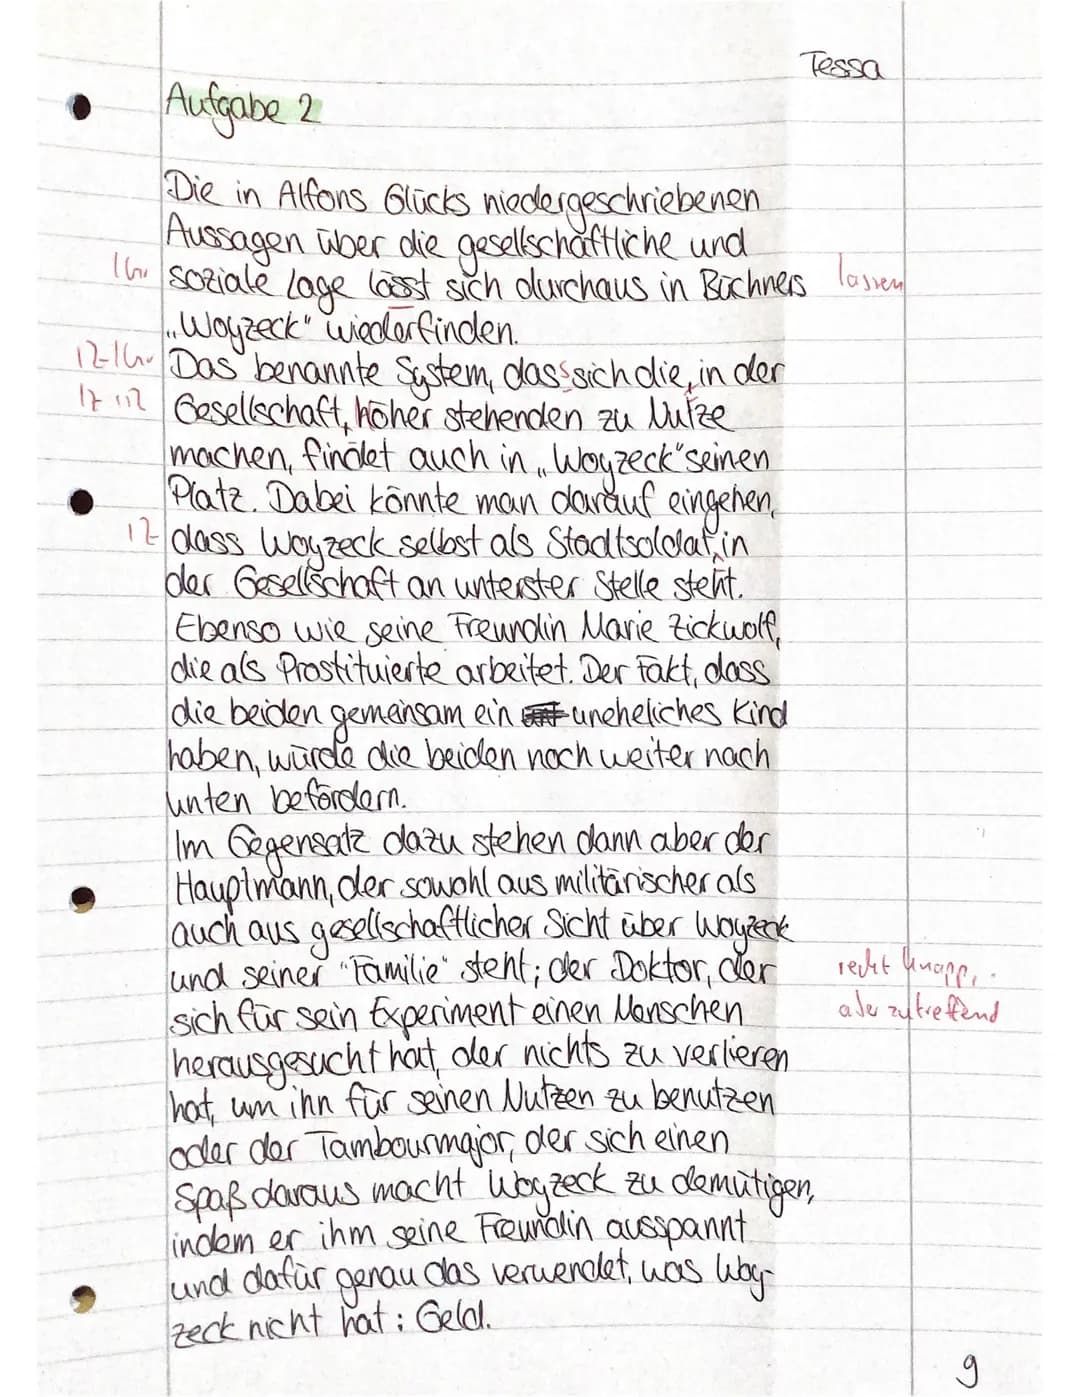 Tessa
Aufgabe 2
Die in Alfons Glücks niedergeschriebenen
Aussagen über die gesellschaftliche und
1Gr soziale Lage lässt sich durchaus in Büchners lassen
„Woyzeck" wiederfinden.
1Z-1Gr Das benannte System, dass sich die, in der
1Z 1Z Gesellschaft, höher stehenden zu Nutze
machen, findet auch in „Woyzeck" seinen
Platz. Dabei könnte man darauf eingehen,
1Z dass Woyzeck selbst als Stadtsoldat, in
der Gesellschaft an unterster Stelle steht.
Ebenso wie seine Freundin Marie Zickwolf,
die als Prostituierte arbeitet. Der Fakt, dass
die beiden gemeinsam ein uneheliches Kind
haben, würde die beiden noch weiter nach
unten befördern.
Im Gegensatz dazu stehen dann aber der
Hauptmann, der sowohl aus militärischer als
auch aus gesellschaftlicher Sicht über Woyzeck
und seiner "Familie" steht; der Doktor, der recht knapp,
sich für sein Experiment einen Menschen aber zutreffend
herausgesucht hat, der nichts zu verlieren
hat, um ihn für seinen Nutzen zu benutzen
oder der Tambourmajor, der sich einen
Spaß daraus macht Woyzeck zu demütigen,
indem er ihm seine Freundin ausspannt
und dafür genau das verwendet, was Woy-
zeck nicht hat: Geld.
9